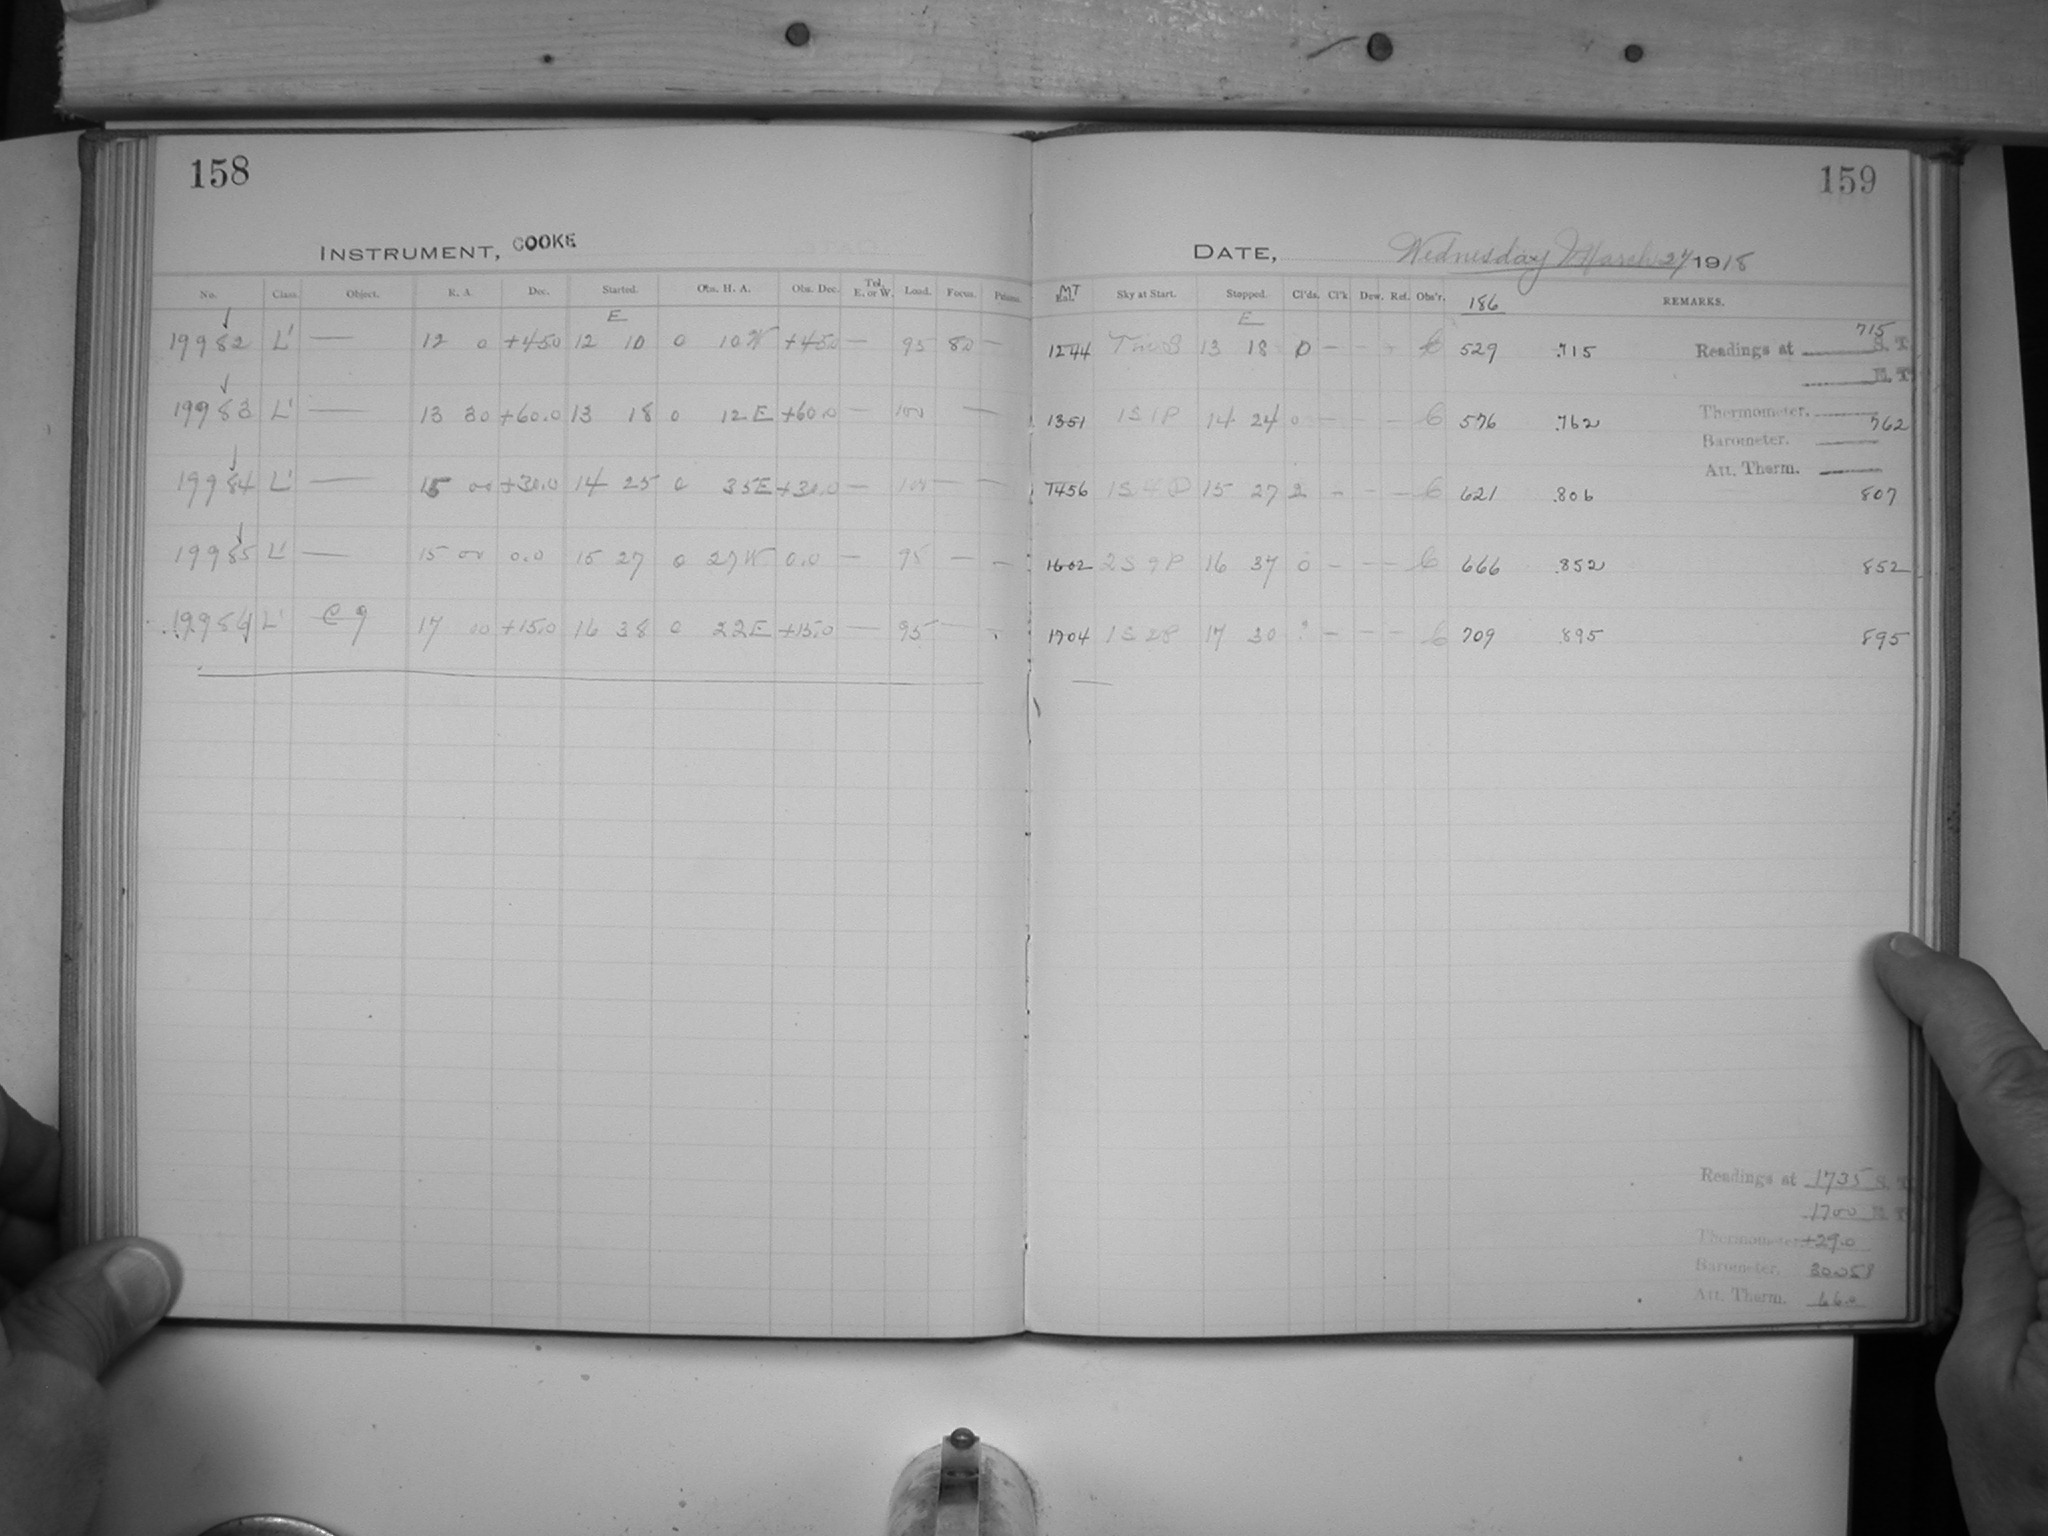 158
159
INSTRUMENT, COOKE
DATE, Wednesday March 27 1918
No. Class. Object. R. A. Dec. Started. Obs. H. A. Obs. Dec. Tel. E. or W. Load. Focus. Prisms.
MT Sky at Start. Stopped. Cl'ds. Cl'k Dew. Ref. Obs'r. 186 REMARKS.
E
E
19982 L' — 12 0 +45.0 12 10 0 10 W +45.0 — 95 80 —
1244 13 18 0 — — 529 .715
715
Readings at S. T.
M. T.
19983 L' — 13 30 +60.0 13 18 0 12 E +60.0 — 100 —
1351 1S 1P 14 24 0 — — — 6 576 .762
Thermometer.
762
Barometer.
Att. Therm.
19984 L' — 15 00 +30.0 14 25 0 35 E +30.0 — 100 — —
1456 15 27 2 — — — 6 621 .806 807
19985 L' — 15 00 0.0 15 27 0 27 W 0.0 — 95 — —
1602 2S 9P 16 37 0 — — — 6 666 .852 852
L' C 9 17 00 +15.0 16 38 0 22 E +15.0 — 95 —
1704 1S 2P 17 30 — — — 6 709 .895 895
Readings at 1735 S. T.
1700 M. T.
Thermometer +29.0
Barometer.
Att. Therm.